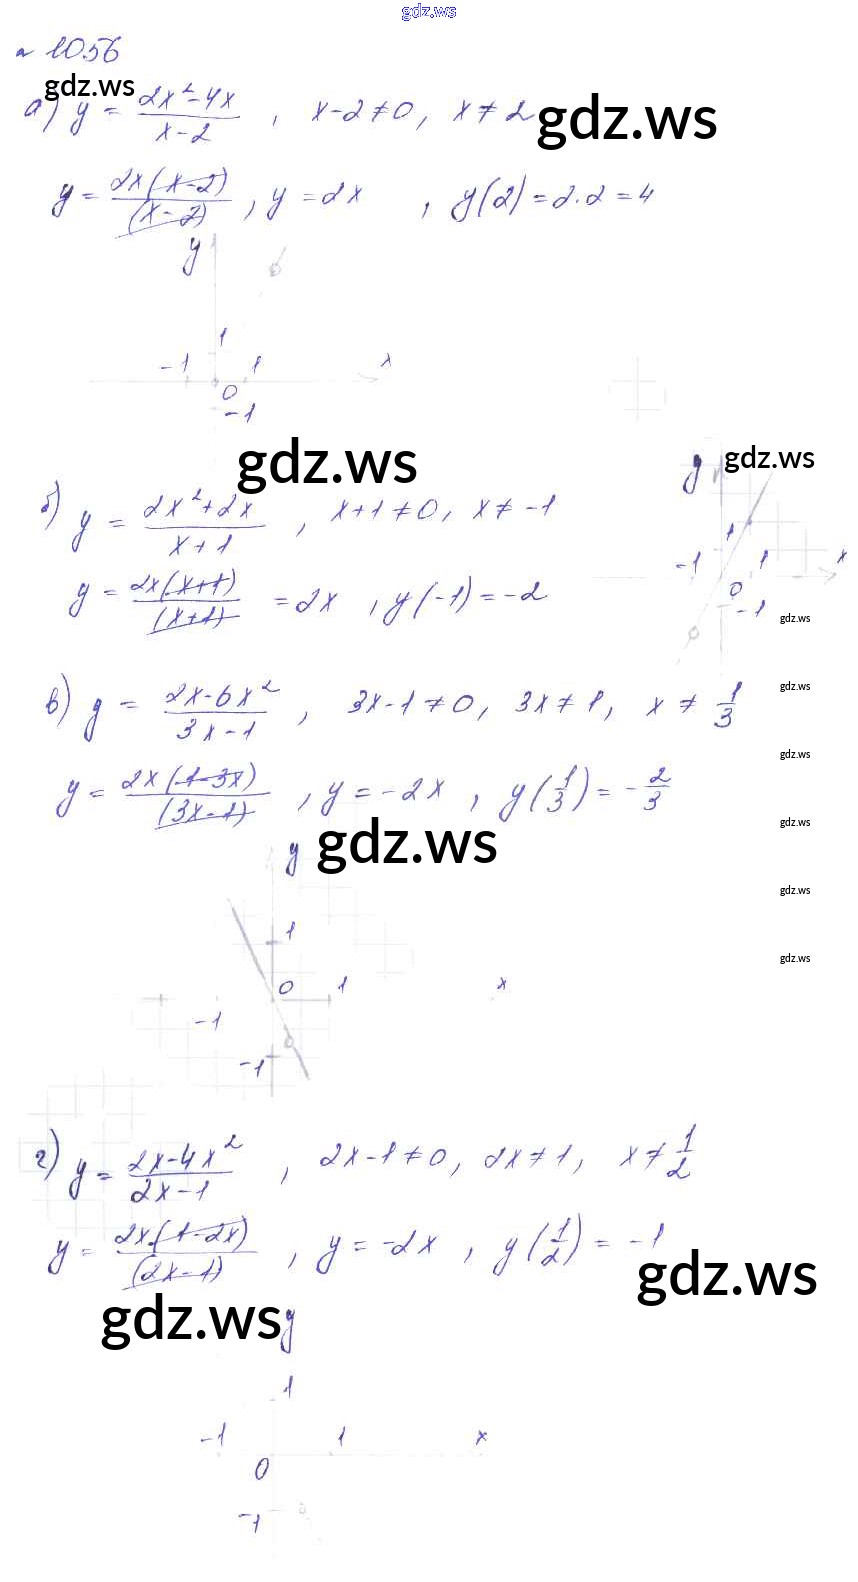 gdz.ws
№ 1056
gdz.ws
а) y = (2x² - 4x)/(x - 2) , x - 2 ≠ 0, x ≠ 2
gdz.ws
y = 2x(x - 2)/(x - 2) , y = 2x , y(2) = 2·2 = 4
y
1
-1 1 x
0
-1
gdz.ws
y gdz.ws
б) y = (2x² + 2x)/(x + 1) , x + 1 ≠ 0, x ≠ -1
1
-1 1 x
0
-1
y = 2x(x + 1)/(x + 1) = 2x , y(-1) = -2
gdz.ws
gdz.ws
в) y = (2x - 6x²)/(3x - 1) , 3x - 1 ≠ 0, 3x ≠ 1, x ≠ 1/3
gdz.ws
y = 2x(1 - 3x)/(3x - 1) , y = -2x , y(1/3) = -2/3
gdz.ws
y gdz.ws
gdz.ws
1
gdz.ws
0 1 x
-1
-1
г) y = (2x - 4x²)/(2x - 1) , 2x - 1 ≠ 0, 2x ≠ 1, x ≠ 1/2
y = 2x(1 - 2x)/(2x - 1) , y = -2x , y(1/2) = -1
gdz.ws
gdz.ws y
1
-1 1 x
0
-1